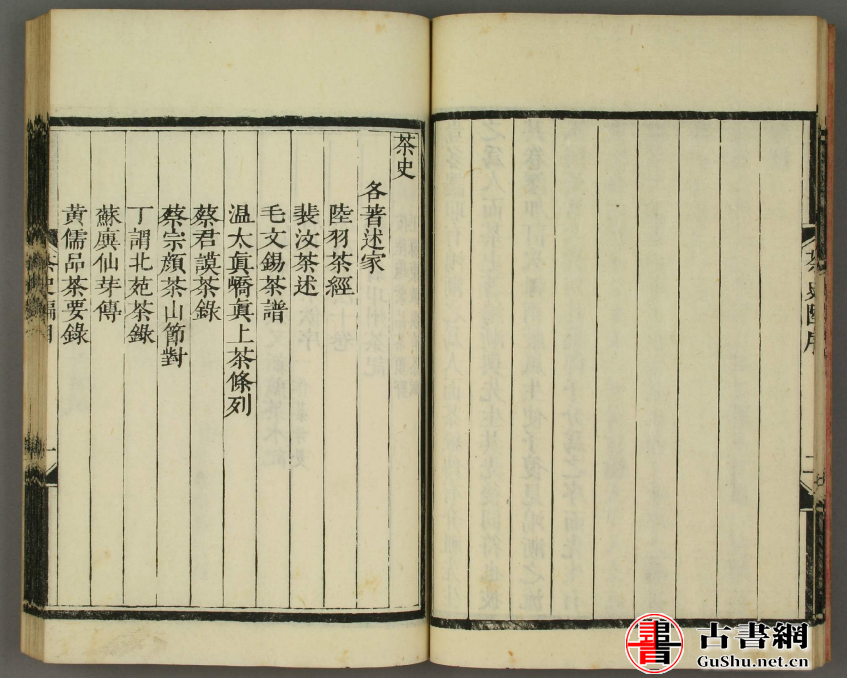 茶史
各著述家
陸羽茶經
裴汶茶述
毛文錫茶譜
温太眞嶠眞上茶條列
蔡君謨茶錄
蔡宗顏茶山節對
丁謂北苑茶錄
蘇廙仙芽傳
黃儒品茶要錄
茶史編目
一
書
古書網
GuShu.net.cn